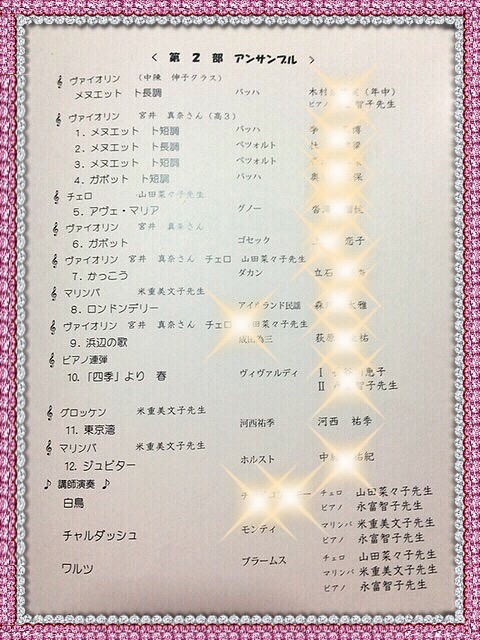 < 第 2 部 アンサンブル >
ヴァイオリン (中陳 伸子クラス)
メヌエット ト長調 バッハ 木村 (年中)
ピアノ 智子先生
ヴァイオリン 宮井 真奈さん(高3)
1. メヌエット ト短調 バッハ
2. メヌエット ト長調 ペツォルト
3. メヌエット ト短調 ペツォルト
4. ガボット ト短調 バッハ 奥 保
チェロ 山田菜々子先生
5. アヴェ・マリア グノー
ヴァイオリン 宮井 真奈さん
6. ガボット ゴセック 恋子
ヴァイオリン 宮井 真奈さん チェロ 山田菜々子先生
7. かっこう ダカン 立石
マリンバ 米重美文子先生
8. ロンドンデリー アイルランド民謡 森 雅
ヴァイオリン 宮井 真奈さん チェロ 田菜々子先生
9. 浜辺の歌 成田為三 荻原 祐
ピアノ連弾
10. 「四季」より 春 ヴィヴァルディ Ⅰ 恵子
Ⅱ 智子先生
グロッケン 米重美文子先生
11. 東京湾 河西祐季 河西 祐季
マリンバ 米重美文子先生
12. ジュピター ホルスト 中 祐紀
♪ 講師演奏 ♪
白鳥 チェロ 山田菜々子先生
ピアノ 永富智子先生
チャルダッシュ モンティ マリンバ 米重美文子先生
ピアノ 永富智子先生
ワルツ ブラームス チェロ 山田菜々子先生
マリンバ 米重美文子先生
ピアノ 永富智子先生